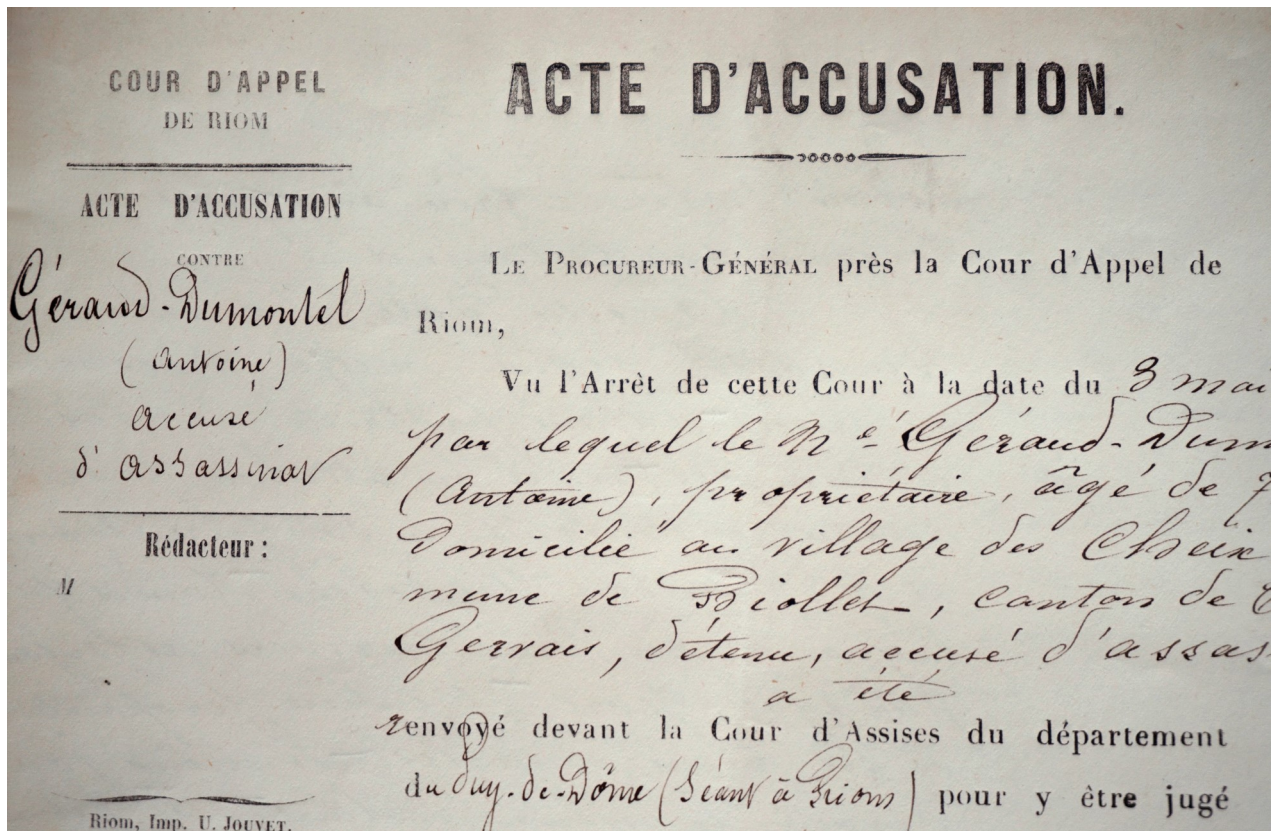 COUR D'APPEL
DE RIOM
ACTE D'ACCUSATION
CONTRE
Géraud-Dumontel
(Antoine)
accusé
d'assassinat
Rédacteur :
M
Riom, Imp. U. JOUVET.
ACTE D'ACCUSATION.
LE PROCUREUR-GÉNÉRAL près la Cour d'Appel de
Riom,
Vu l'Arrêt de cette Cour à la date du 8 mai
par lequel le Né Géraud-Dum
(Antoine), propriétaire, âgé de 7
Domicilié au village des Cheix
mune de Biollet, canton de
Gervais, détenu, accusé d'assas
a été
renvoyé devant la Cour d'Assises du département
du Puy-de-Dôme (Séant à Riom) pour y être jugé